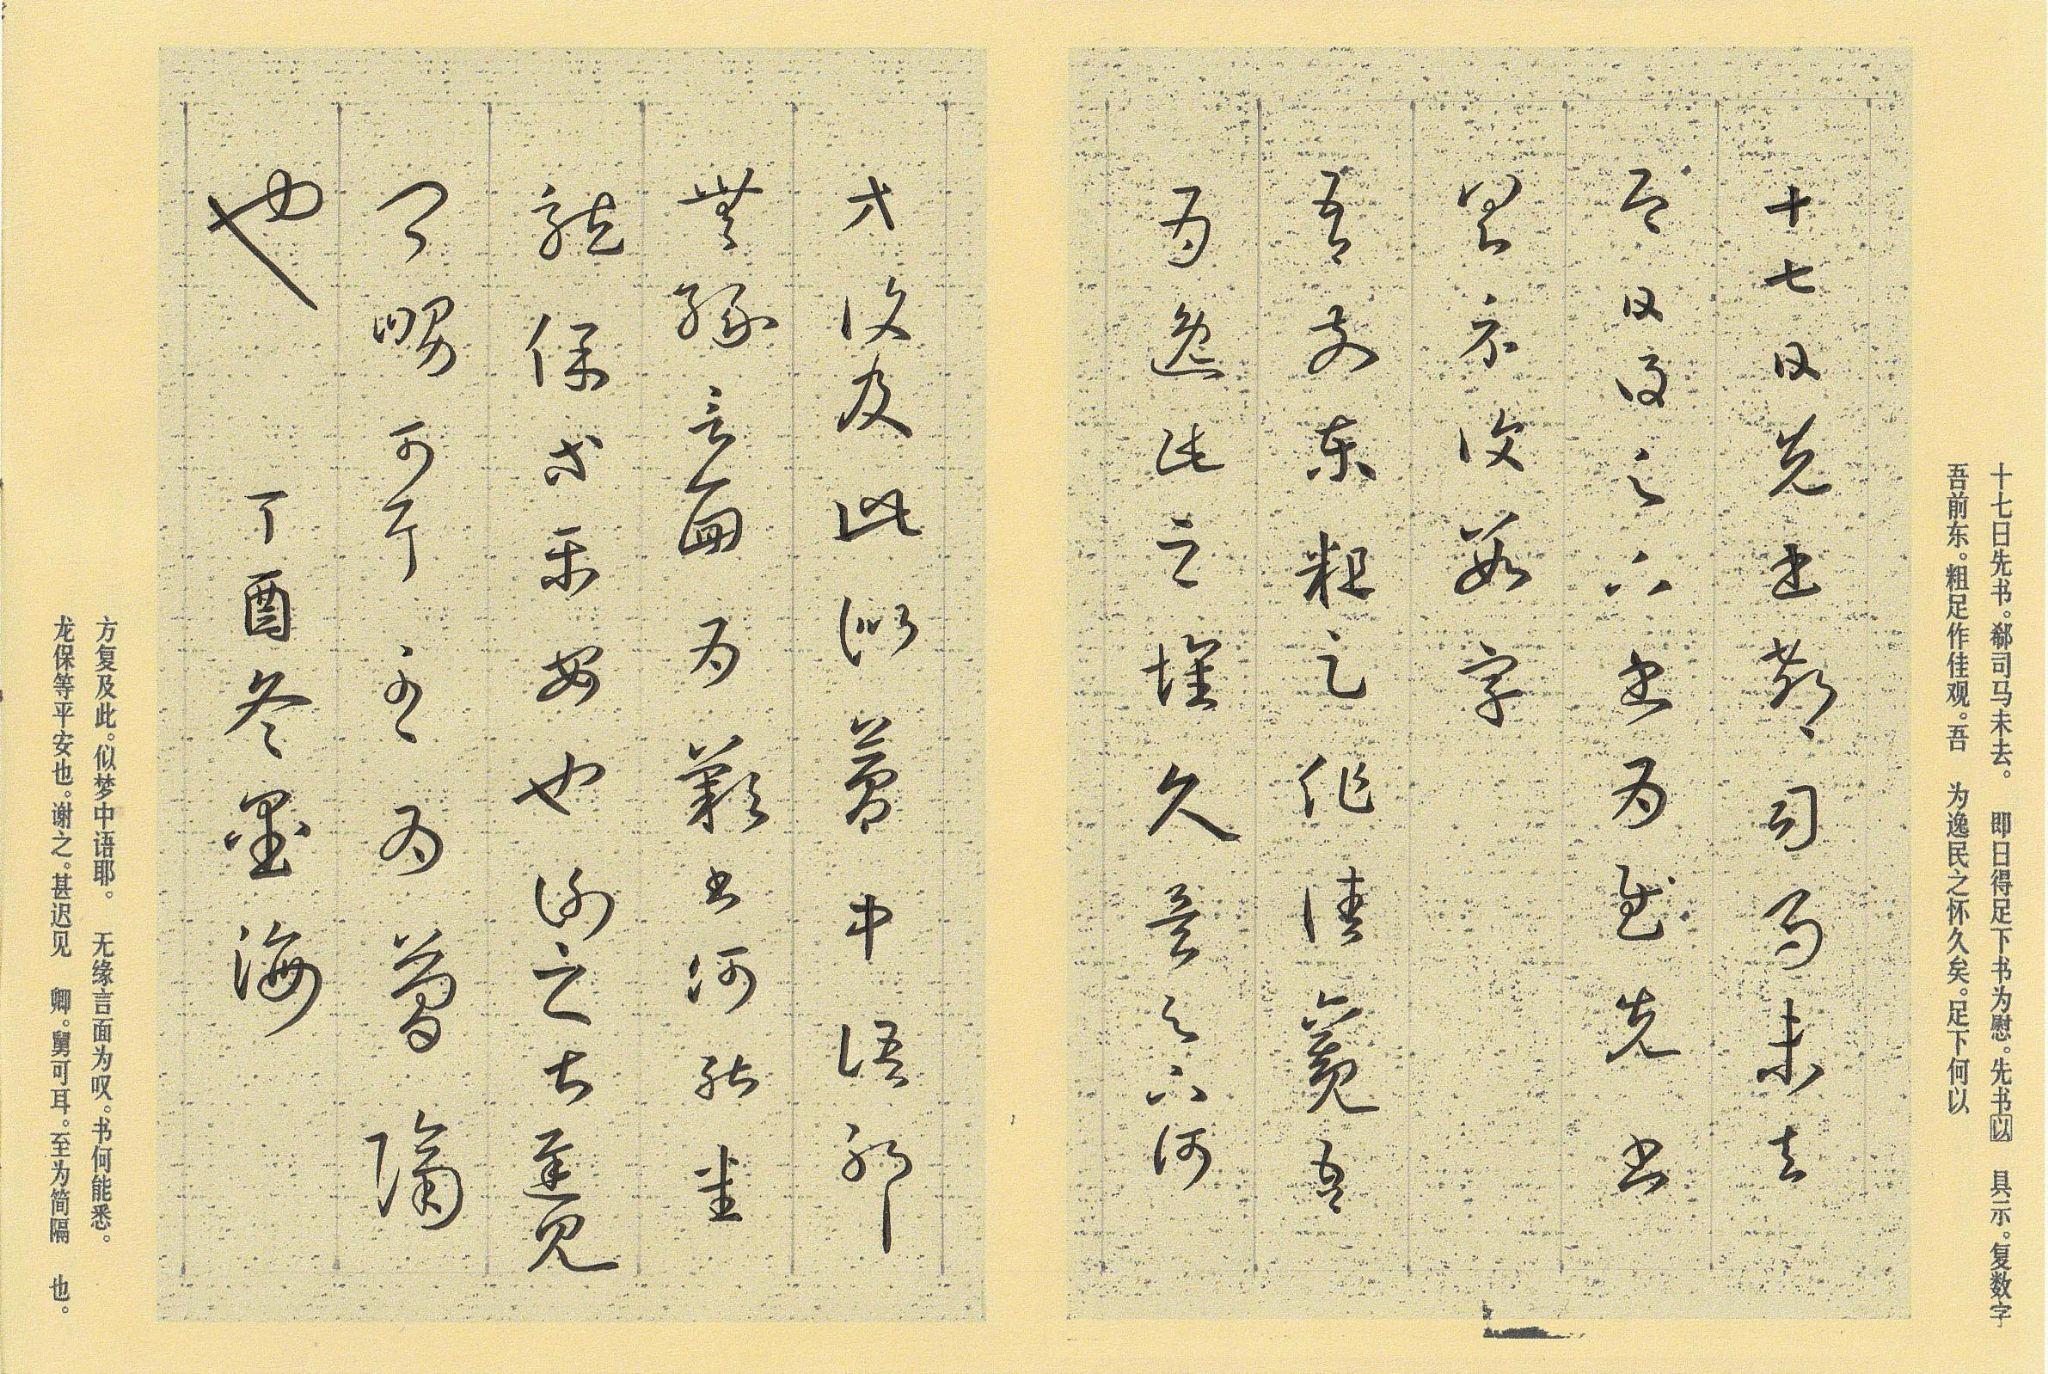 十七日先书。郗司马未去。 即日得足下书为慰。先书以 具示。复数字
吾前东。粗足作佳观。吾 为逸民之怀久矣。足下何以
十七日先書郗司馬未去
即日得足下書為慰先書
具示復數字
吾前東粗足作佳觀吾
為逸民之懷久矣足下何
方復及此似夢中語耶
無緣言面為歎書何能悉
龍保等平安也謝之甚遲見
卿舅可耳至為簡隔
也 丁酉冬墨海
方复及此。似梦中语耶。 无缘言面为叹。书何能悉。
龙保等平安也。谢之。甚迟见 卿。舅可耳。至为简隔 也。